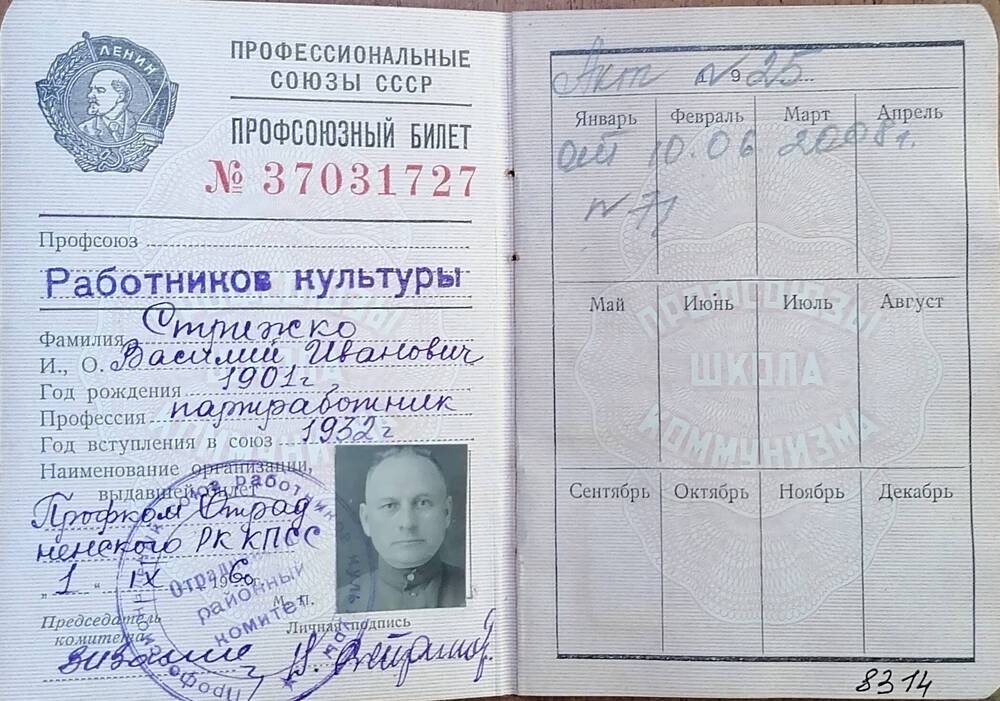 ЛЕНИН
ПРОФЕССИОНАЛЬНЫЕ
СОЮЗЫ СССР
ПРОФСОЮЗНЫЙ БИЛЕТ
№ 37031727
Профсоюз
Работников культуры
Фамилия Стрижко
И., О. Василий Иванович
Год рождения 1901г
Профессия партработник
Год вступления в союз 1932г
Наименование организации,
выдавшей билет
Профком Отрад
ненского РК КПСС
„ 1 " IX 1960 г.
М. П.
Председатель
комитета
Личная подпись
районный
комитет
Акт № 25
Январь Февраль Март Апрель
от 10.06 2008г.
N 71
Май Июнь Июль Август
ПРОФСОЮЗЫ
ШКОЛА
КОММУНИЗМА
Сентябрь Октябрь Ноябрь Декабрь
8314